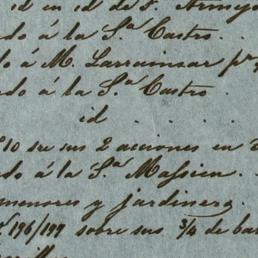 id en id de F. Armijo
do á la S.ª Castro . .
do á M. Larrainzar p.r
ado á la S.ª Castro .
id . . . .
10 sre sus 2 acciones en
do á la S.ª Massieu .
menores y jardinero .
196/199 sobre sus 3/4 de bar